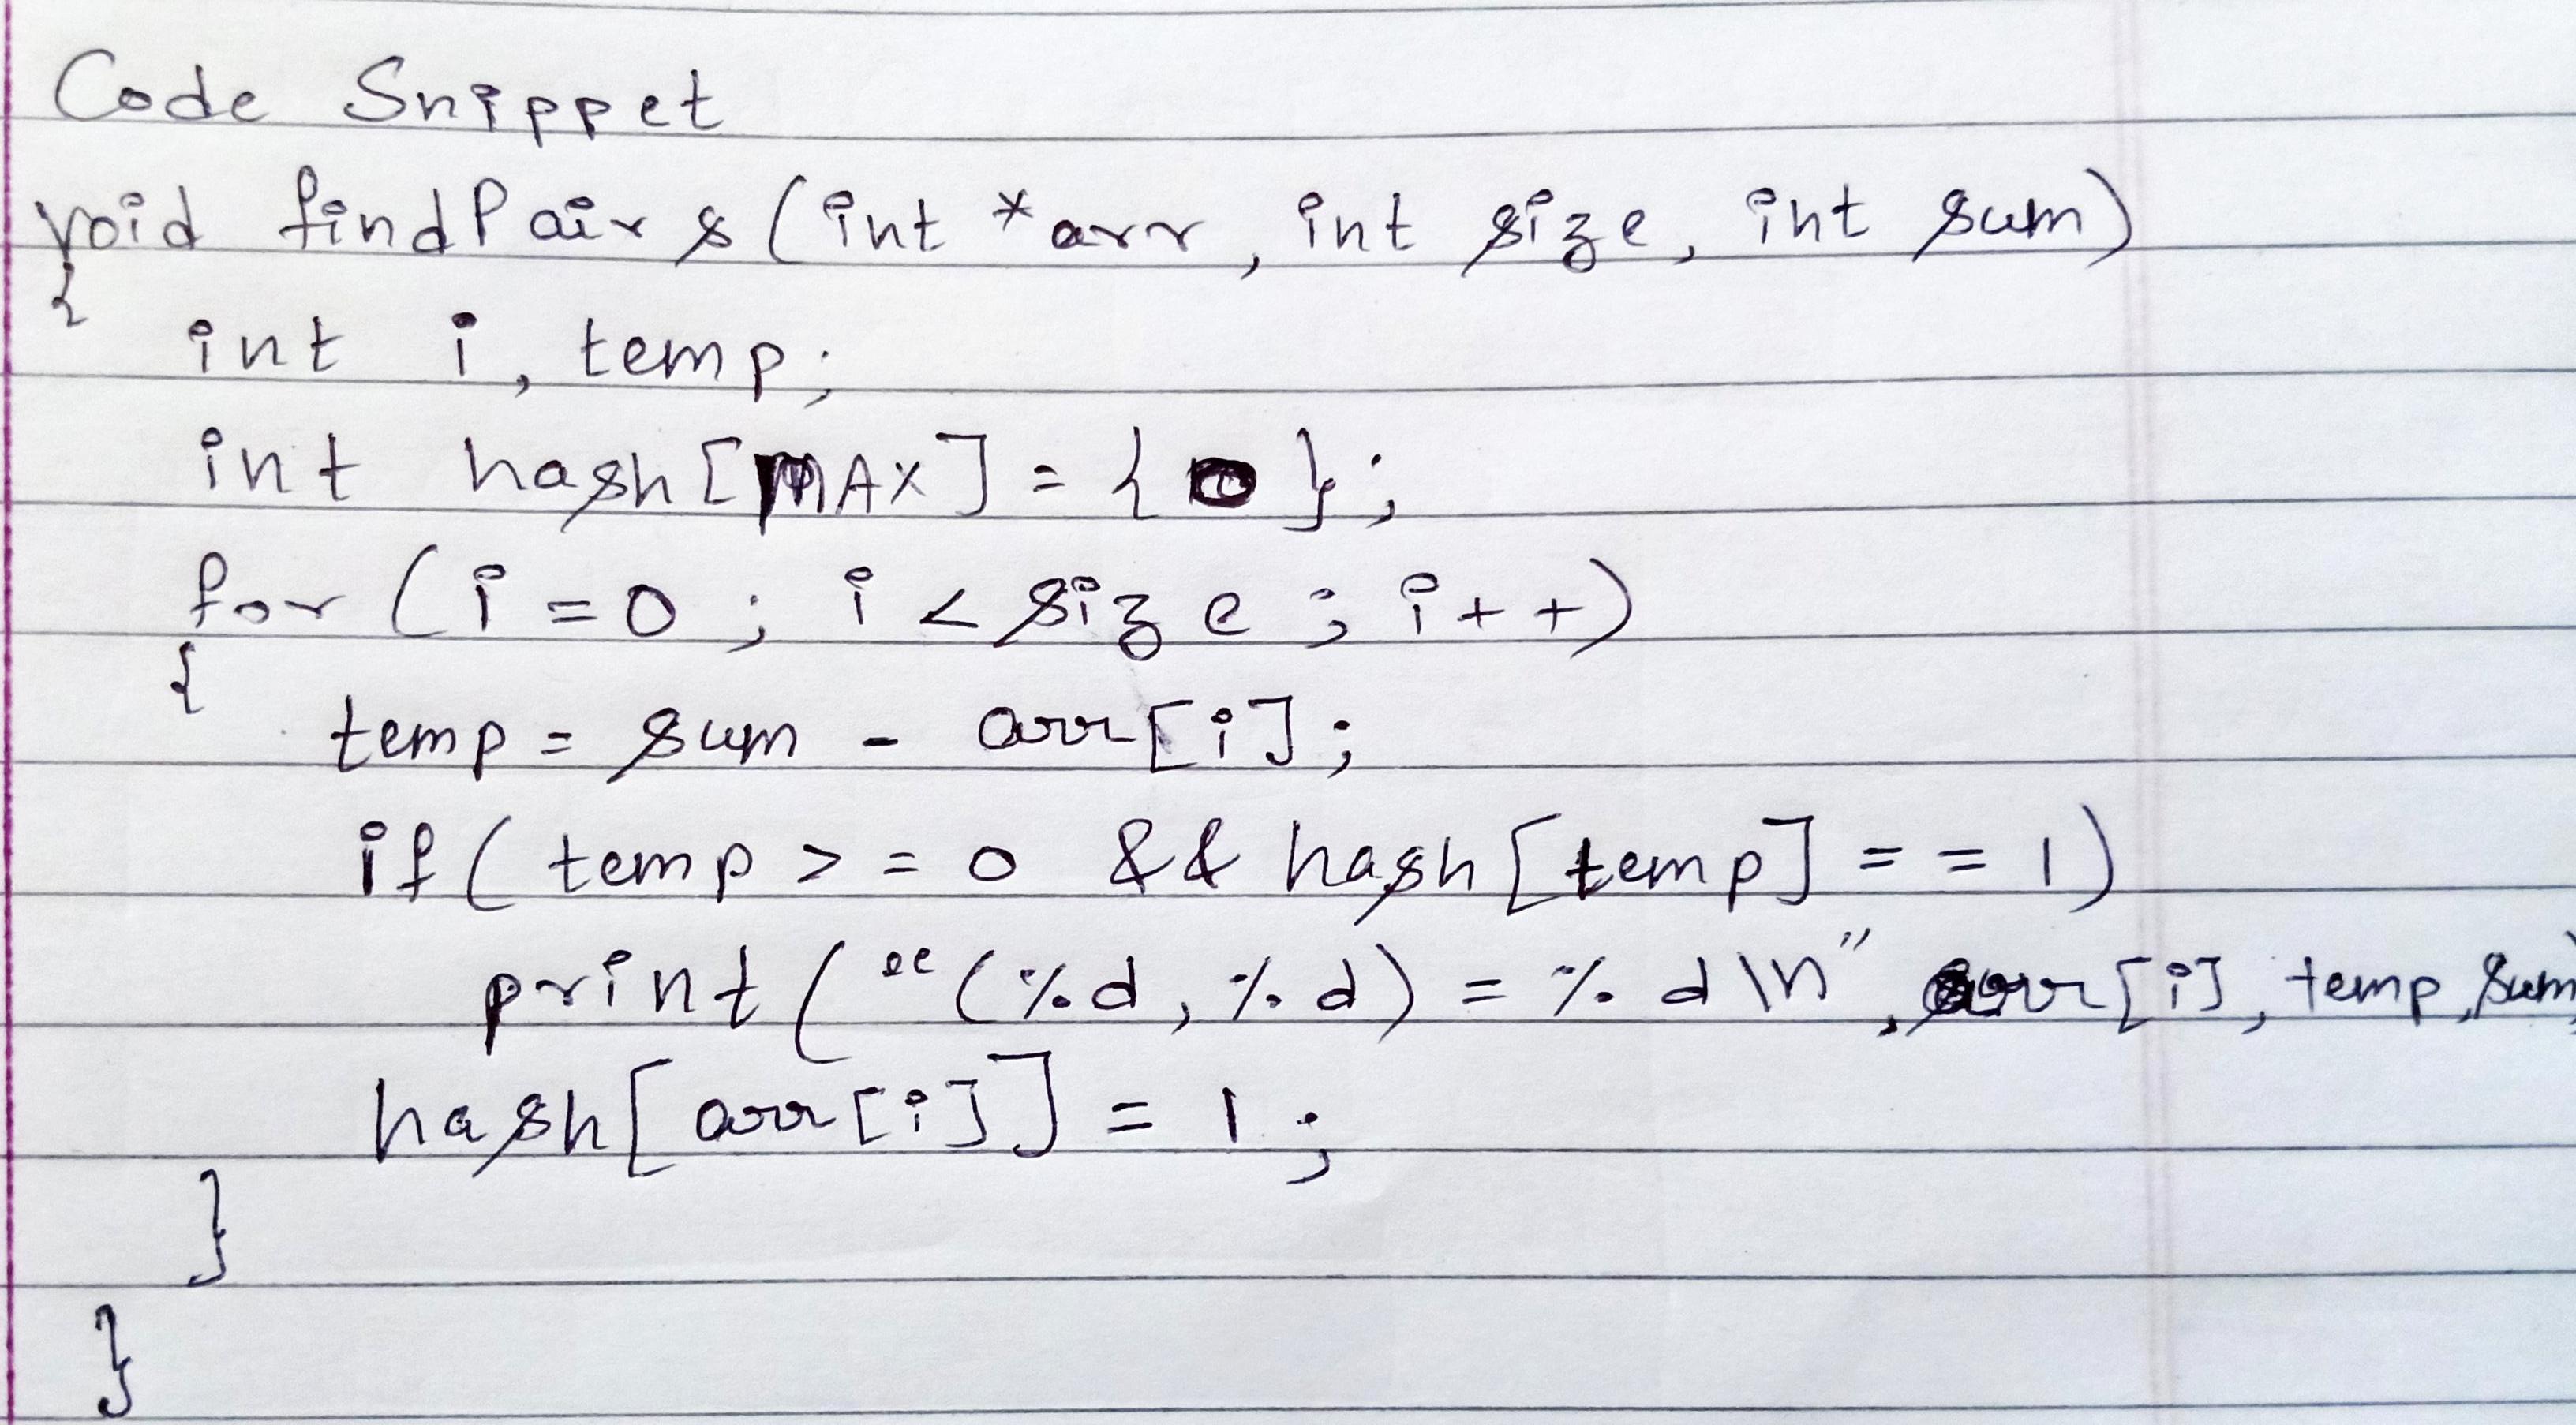 Code Snippet
void findPairs(int *arr, int size, int sum)
{
int i, temp;
int hash[MAX] = {0};
for (i = 0; i < size; i++)
{
temp = sum - arr[i];
if (temp >= 0 && hash[temp] == 1)
print("(%d, %d) = %d\n", arr[i], temp, sum)
hash[arr[i]] = 1;
}
}